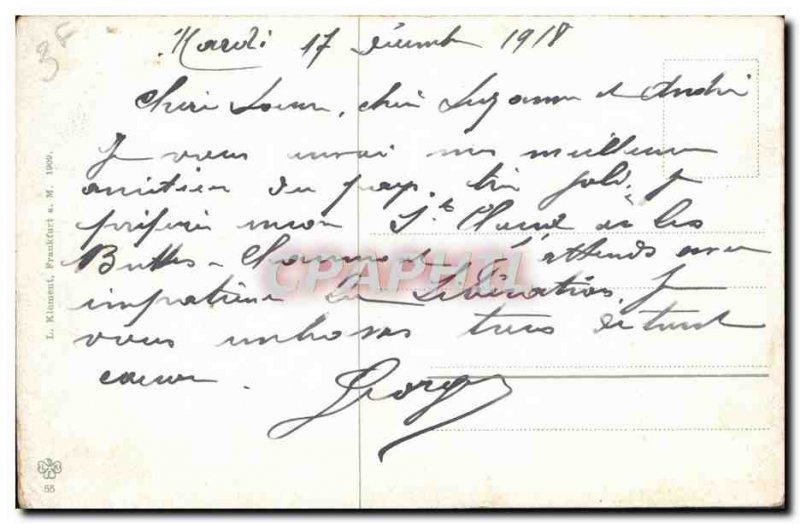 3F
Mardi 17 décembre 1918
Chère Soeur, chère Suzanne et André
Je vous envoi mes meilleures
amitiés du pays. très joli, Je
préfère mon St Cloud ou les
Buttes-Chaumont J'attends avec
impatience la Libération. Je
vous embrasse tous de tout
coeur.
Georges
L. Klement, Frankfurt a. M. 1909.
55
CPAPHIL